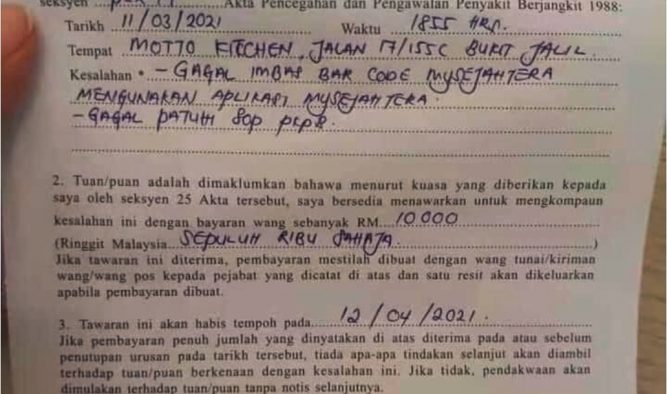 seksyen ............ Akta Pencegahan dan Pengawalan Penyakit Berjangkit 1988:
Tarikh 11/03/2021 Waktu 1855 HRS.
Tempat MOTTO KITCHEN, JALAN 17/155C BUKIT JALIL.
Kesalahan • - GAGAL IMBAS BAR CODE MYSEJAHTERA
MENGUNAKAN APLIKASI MYSEJAHTERA.
- GAGAL PATUHI SOP PKPB.
2. Tuan/puan adalah dimaklumkan bahawa menurut kuasa yang diberikan kepada
saya oleh seksyen 25 Akta tersebut, saya bersedia menawarkan untuk mengkompaun
kesalahan ini dengan bayaran wang sebanyak RM 10 000
(Ringgit Malaysia SEPULUH RIBU SAHAJA.)
Jika tawaran ini diterima, pembayaran mestilah dibuat dengan wang tunai/kiriman
wang/wang pos kepada pejabat yang dicatat di atas dan satu resit akan dikeluarkan
apabila pembayaran dibuat.
3. Tawaran ini akan habis tempoh pada 12/04/2021.
Jika pembayaran penuh jumlah yang dinyatakan di atas diterima pada atau sebelum
penutupan urusan pada tarikh tersebut, tiada apa-apa tindakan selanjut akan diambil
terhadap tuan/puan berkenaan dengan kesalahan ini. Jika tidak, pendakwaan akan
dimulakan terhadap tuan/puan tanpa notis selanjutnya.